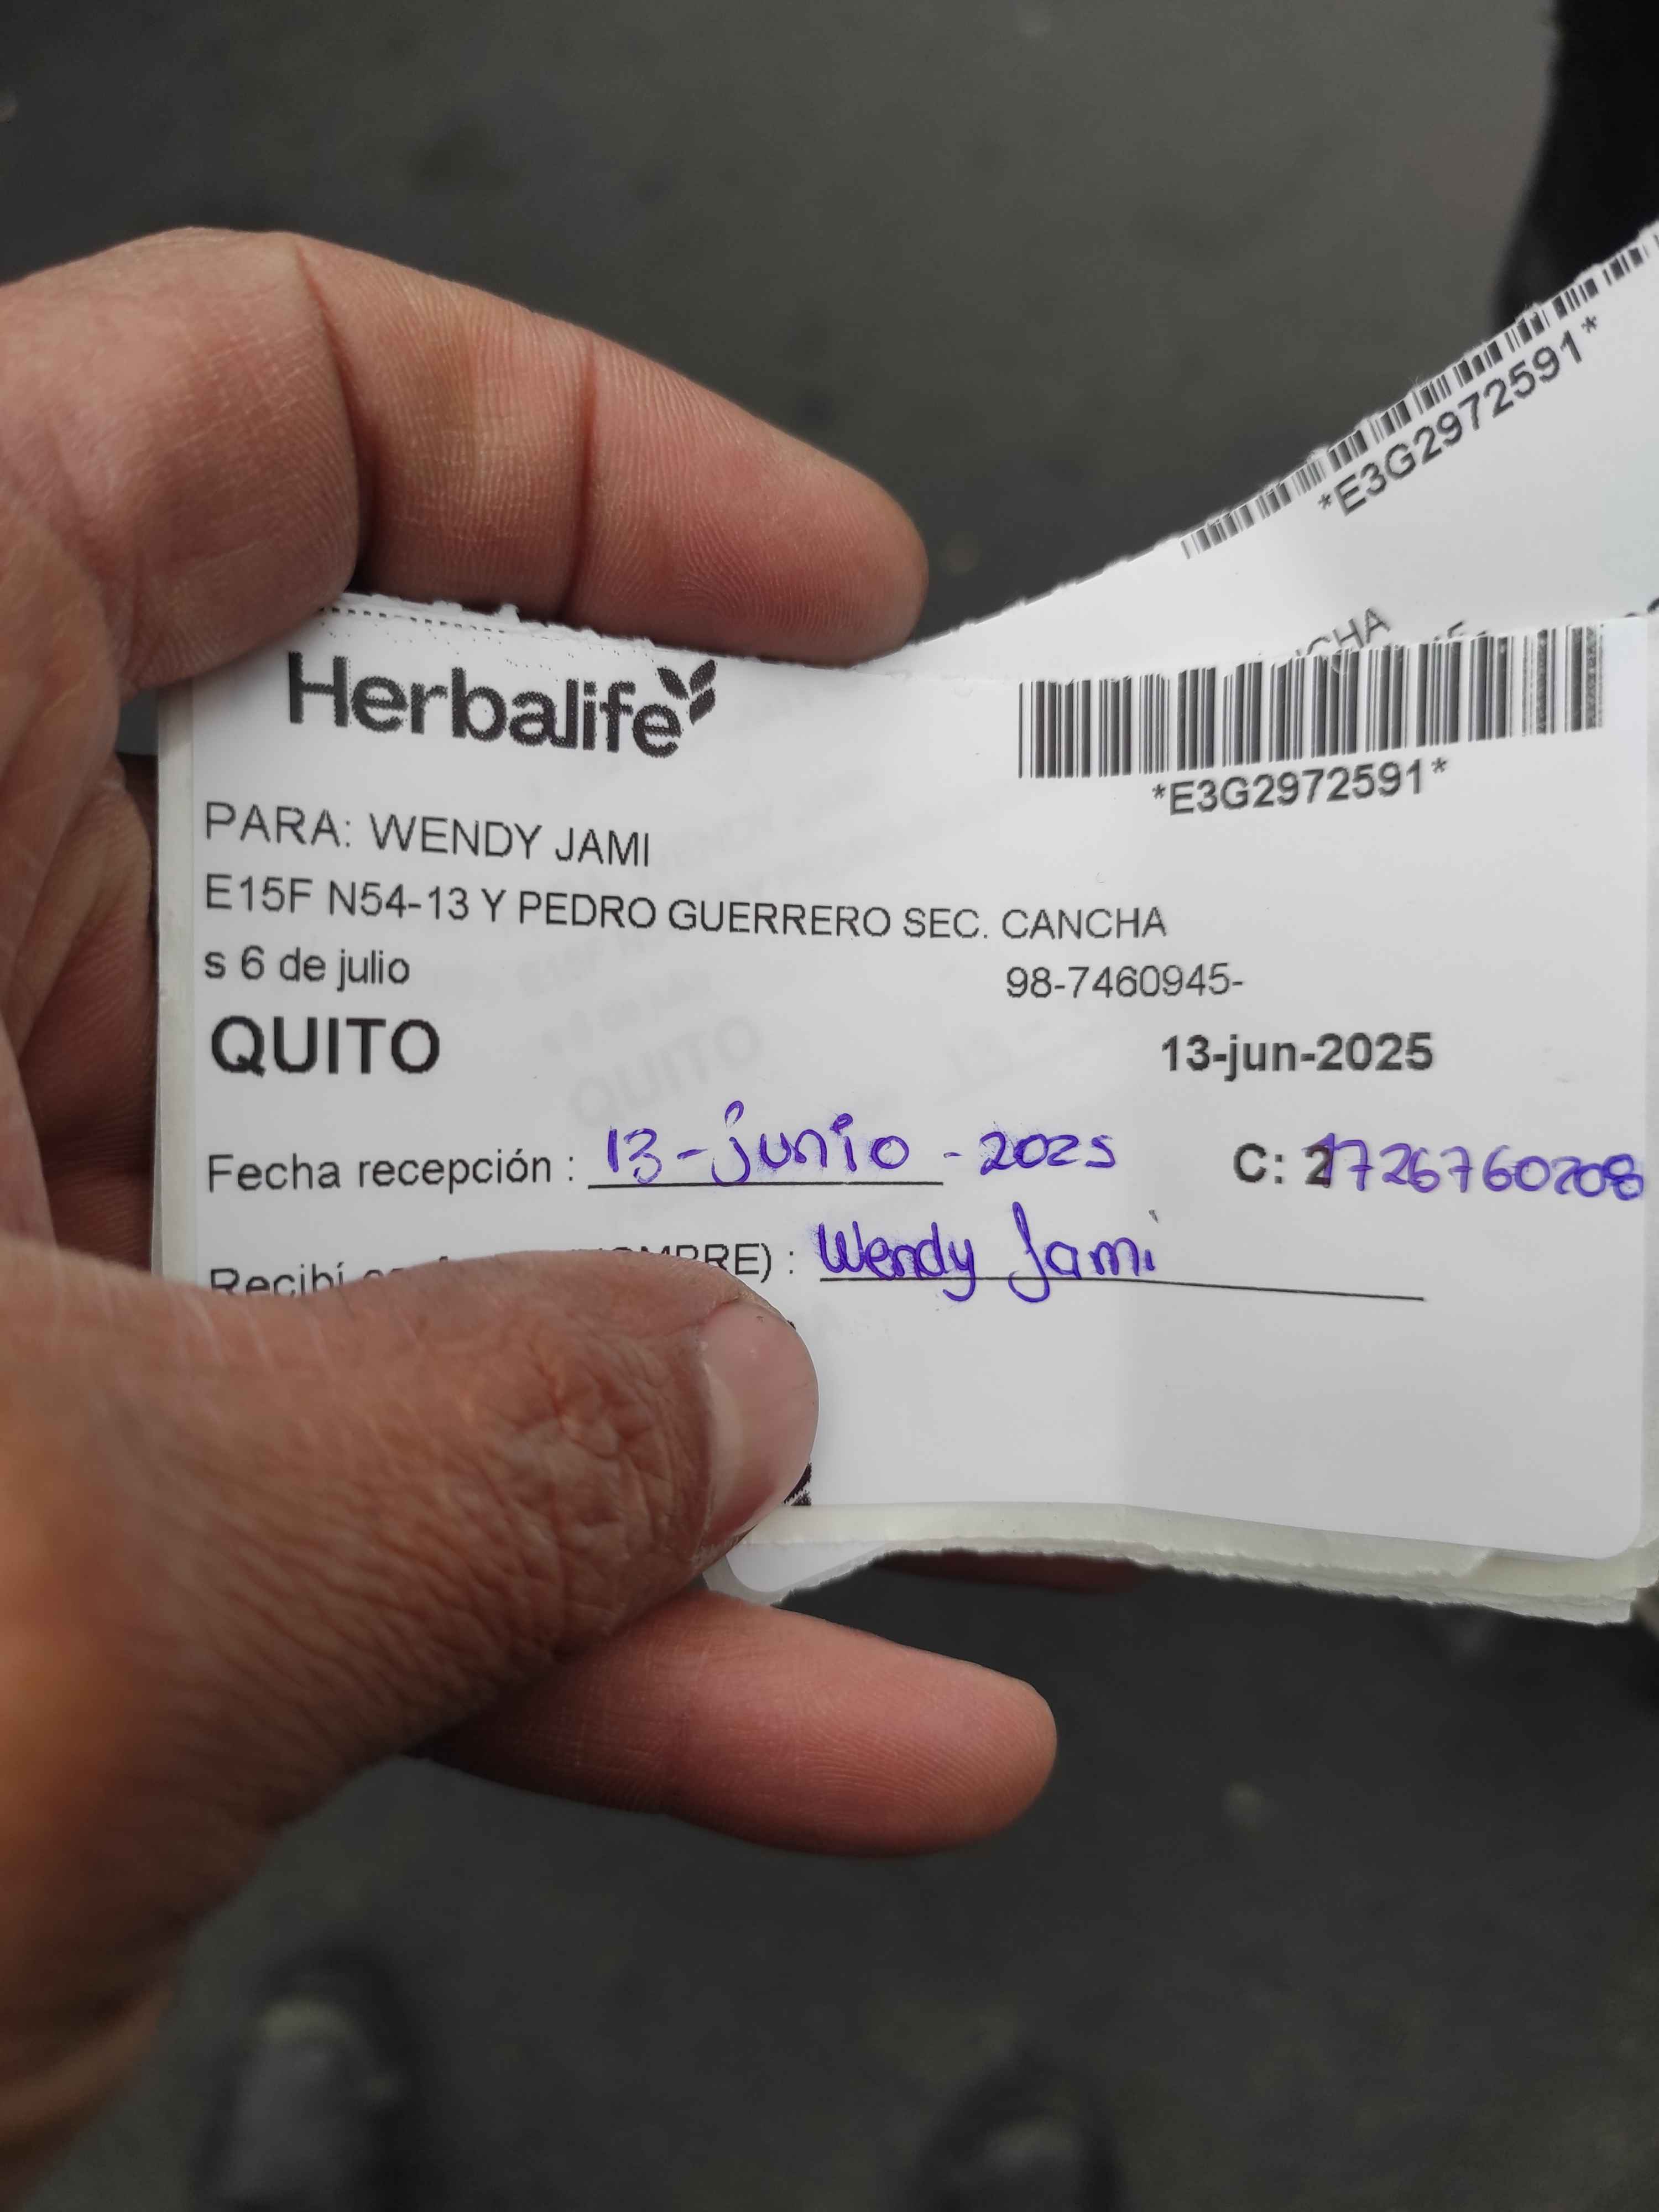 *E3G2972591*
CHA
Herbalife
*E3G2972591*
PARA: WENDY JAMI
E15F N54-13 Y PEDRO GUERRERO SEC. CANCHA
s 6 de julio 98-7460945-
QUITO 13-jun-2025
Fecha recepción : 13-junio-2025 C: 2 1726760208
Recibí MBRE) : Wendy Jami